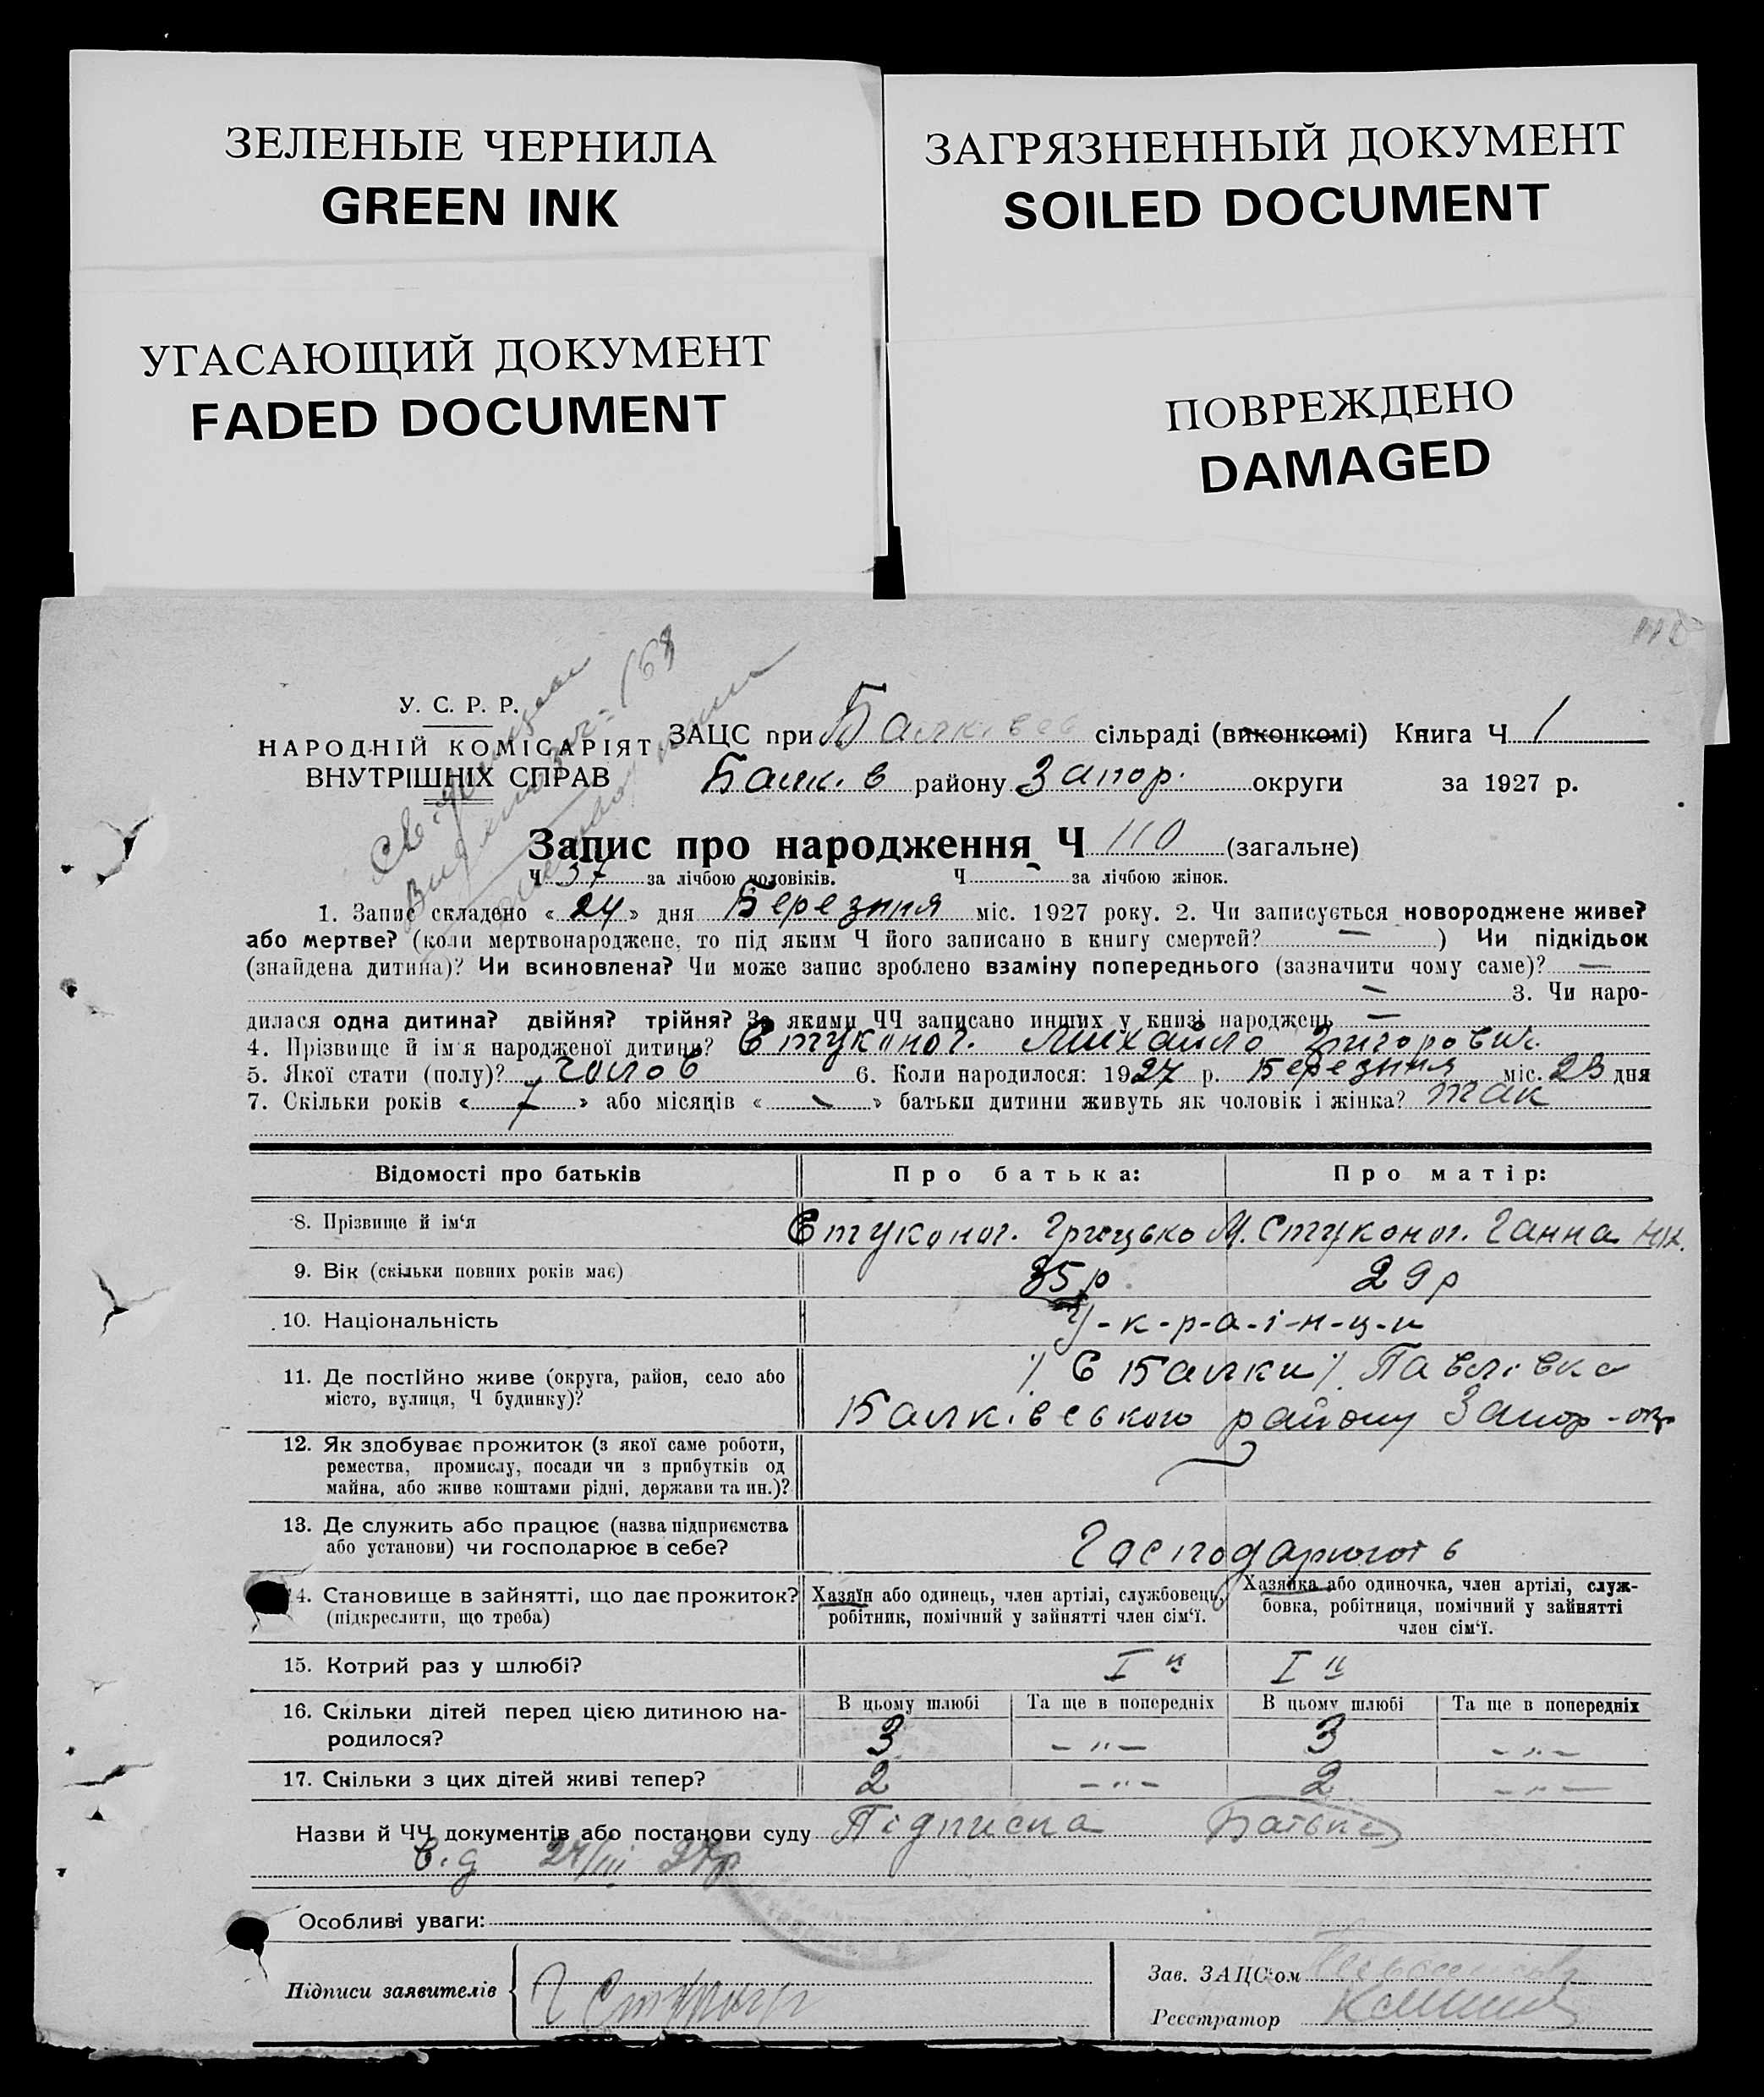 ЗЕЛЕНЫЕ ЧЕРНИЛА
GREEN INK
УГАСАЮЩИЙ ДОКУМЕНТ
FADED DOCUMENT
ЗАГРЯЗНЕННЫЙ ДОКУМЕНТ
SOILED DOCUMENT
ПОВРЕЖДЕНО
DAMAGED
У. С. Р. Р.
НАРОДНІЙ КОМІСАРІЯТ
ВНУТРІШНІХ СПРАВ
ЗАЦС при Балківсь сільраді (виконкомі) Книга Ч 1
Балк. в району Запор. округи за 1927 р.
Запис про народження Ч 110 (загальне)
Ч 57 за лічбою чоловіків. Ч - за лічбою жінок.
1. Запис складено « 24 » дня Березння міс. 1927 року. 2. Чи записується новороджене живе?
або мертве? (коли мертвонароджене, то під яким Ч його записано в книгу смертей? — ) Чи підкідьок
(знайдена дитина)? Чи всиновлена? Чи може запис зроблено взаміну попереднього (зазначити чому саме)? —
— 3. Чи наро-
дилася одна дитина? двійня? трійня? За якими ЧЧ записано инших у книзі народжень —
4. Прізвище й ім'я народженої дитини? Стуконог. Михайло Григорович
5. Якої стати (полу)? чолов 6. Коли народилося: 1927 р. Березння міс. 23 дня
7. Скільки років « 7 » або місяців « - » батьки дитини живуть як чоловік і жінка? так
Відомості про батьків Про батька: Про матір:
8. Прізвище й ім'я Стуконог. Грицько М. Стуконог. Ганна
9. Вік (скільки повних років має) 35 р 29 р
10. Національність У-к-р-а-і-н-ц-и
11. Де постійно живе (округа, район, село або
місто, вулиця, Ч будинку)? С Балки Павлівка
Балківського району Запор-окр
12. Як здобуває прожиток (з якої саме роботи,
ремества, промислу, посади чи з прибутків од
майна, або живе коштами рідні, держави та ин.)?
13. Де служить або працює (назва підприємства
або установи) чи господарює в себе? Господарюють
14. Становище в зайнятті, що дає прожиток?
(підкреслити, що треба)
Хазяїн або одинець, член артілі, службовець,
робітник, помічний у зайнятті член сім'ї.
Хазяйка або одиночка, член артілі, служ-
бовка, робітниця, помічний у зайнятті
член сім'ї.
15. Котрий раз у шлюбі? I й I й
16. Скільки дітей перед цією дитиною на-
родилося?
В цьому шлюбі Та ще в попередніх В цьому шлюбі Та ще в попередніх
3 - " - 3 - " -
17. Скільки з цих дітей живі тепер? 2 - " - 2 - " -
Назви й ЧЧ документів або постанови суду Підписка Батька
24/III 27р
Особливі уваги:
Підписи заявителів
Зав. ЗАЦС'ом
Реєстратор